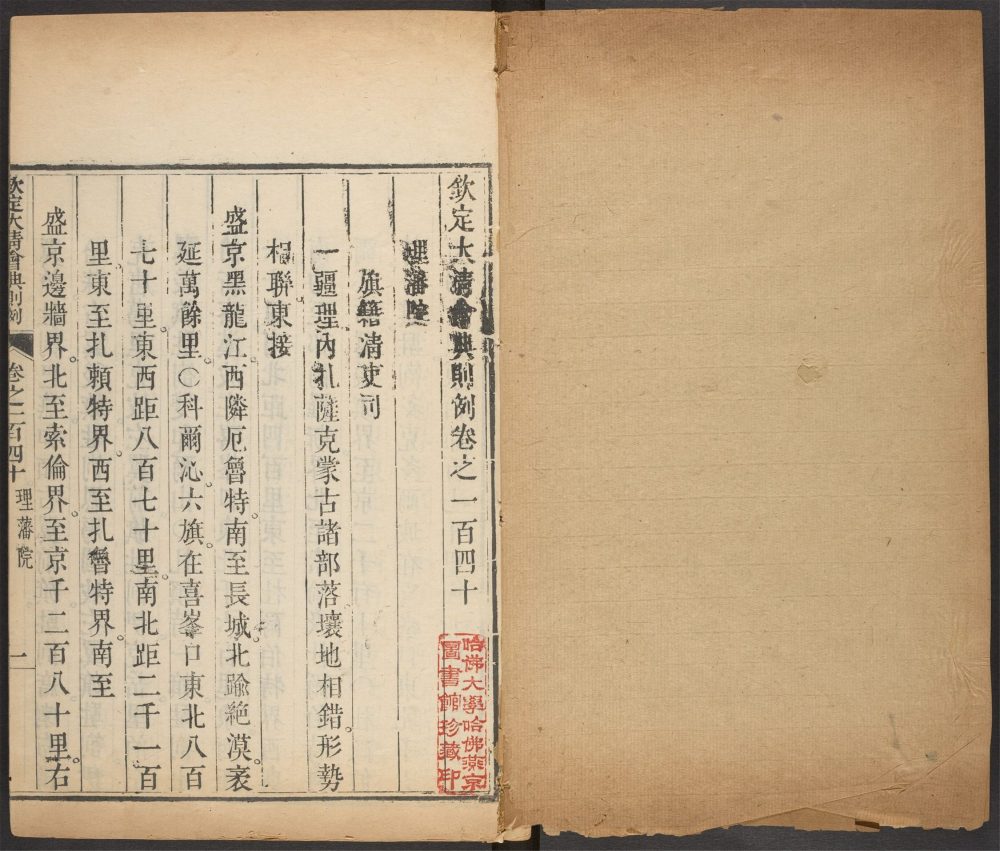 欽定大清會典則例卷之一百四十
理藩院
旗籍清吏司
一疆理內扎薩克蒙古諸部落壤地相錯形勢
相聯東接
盛京黑龍江西隣厄魯特南至長城北踰絕漠袤
延萬餘里〇科爾沁六旗在喜峯口東北八百
七十里東西距八百七十里南北距二千一百
里東至扎賴特界西至扎魯特界南至
盛京邊牆界北至索倫界至京千二百八十里右
欽定大清會典則例
卷之一百四十
理藩院
一
哈佛大學哈佛燕京
圖書館珍藏印